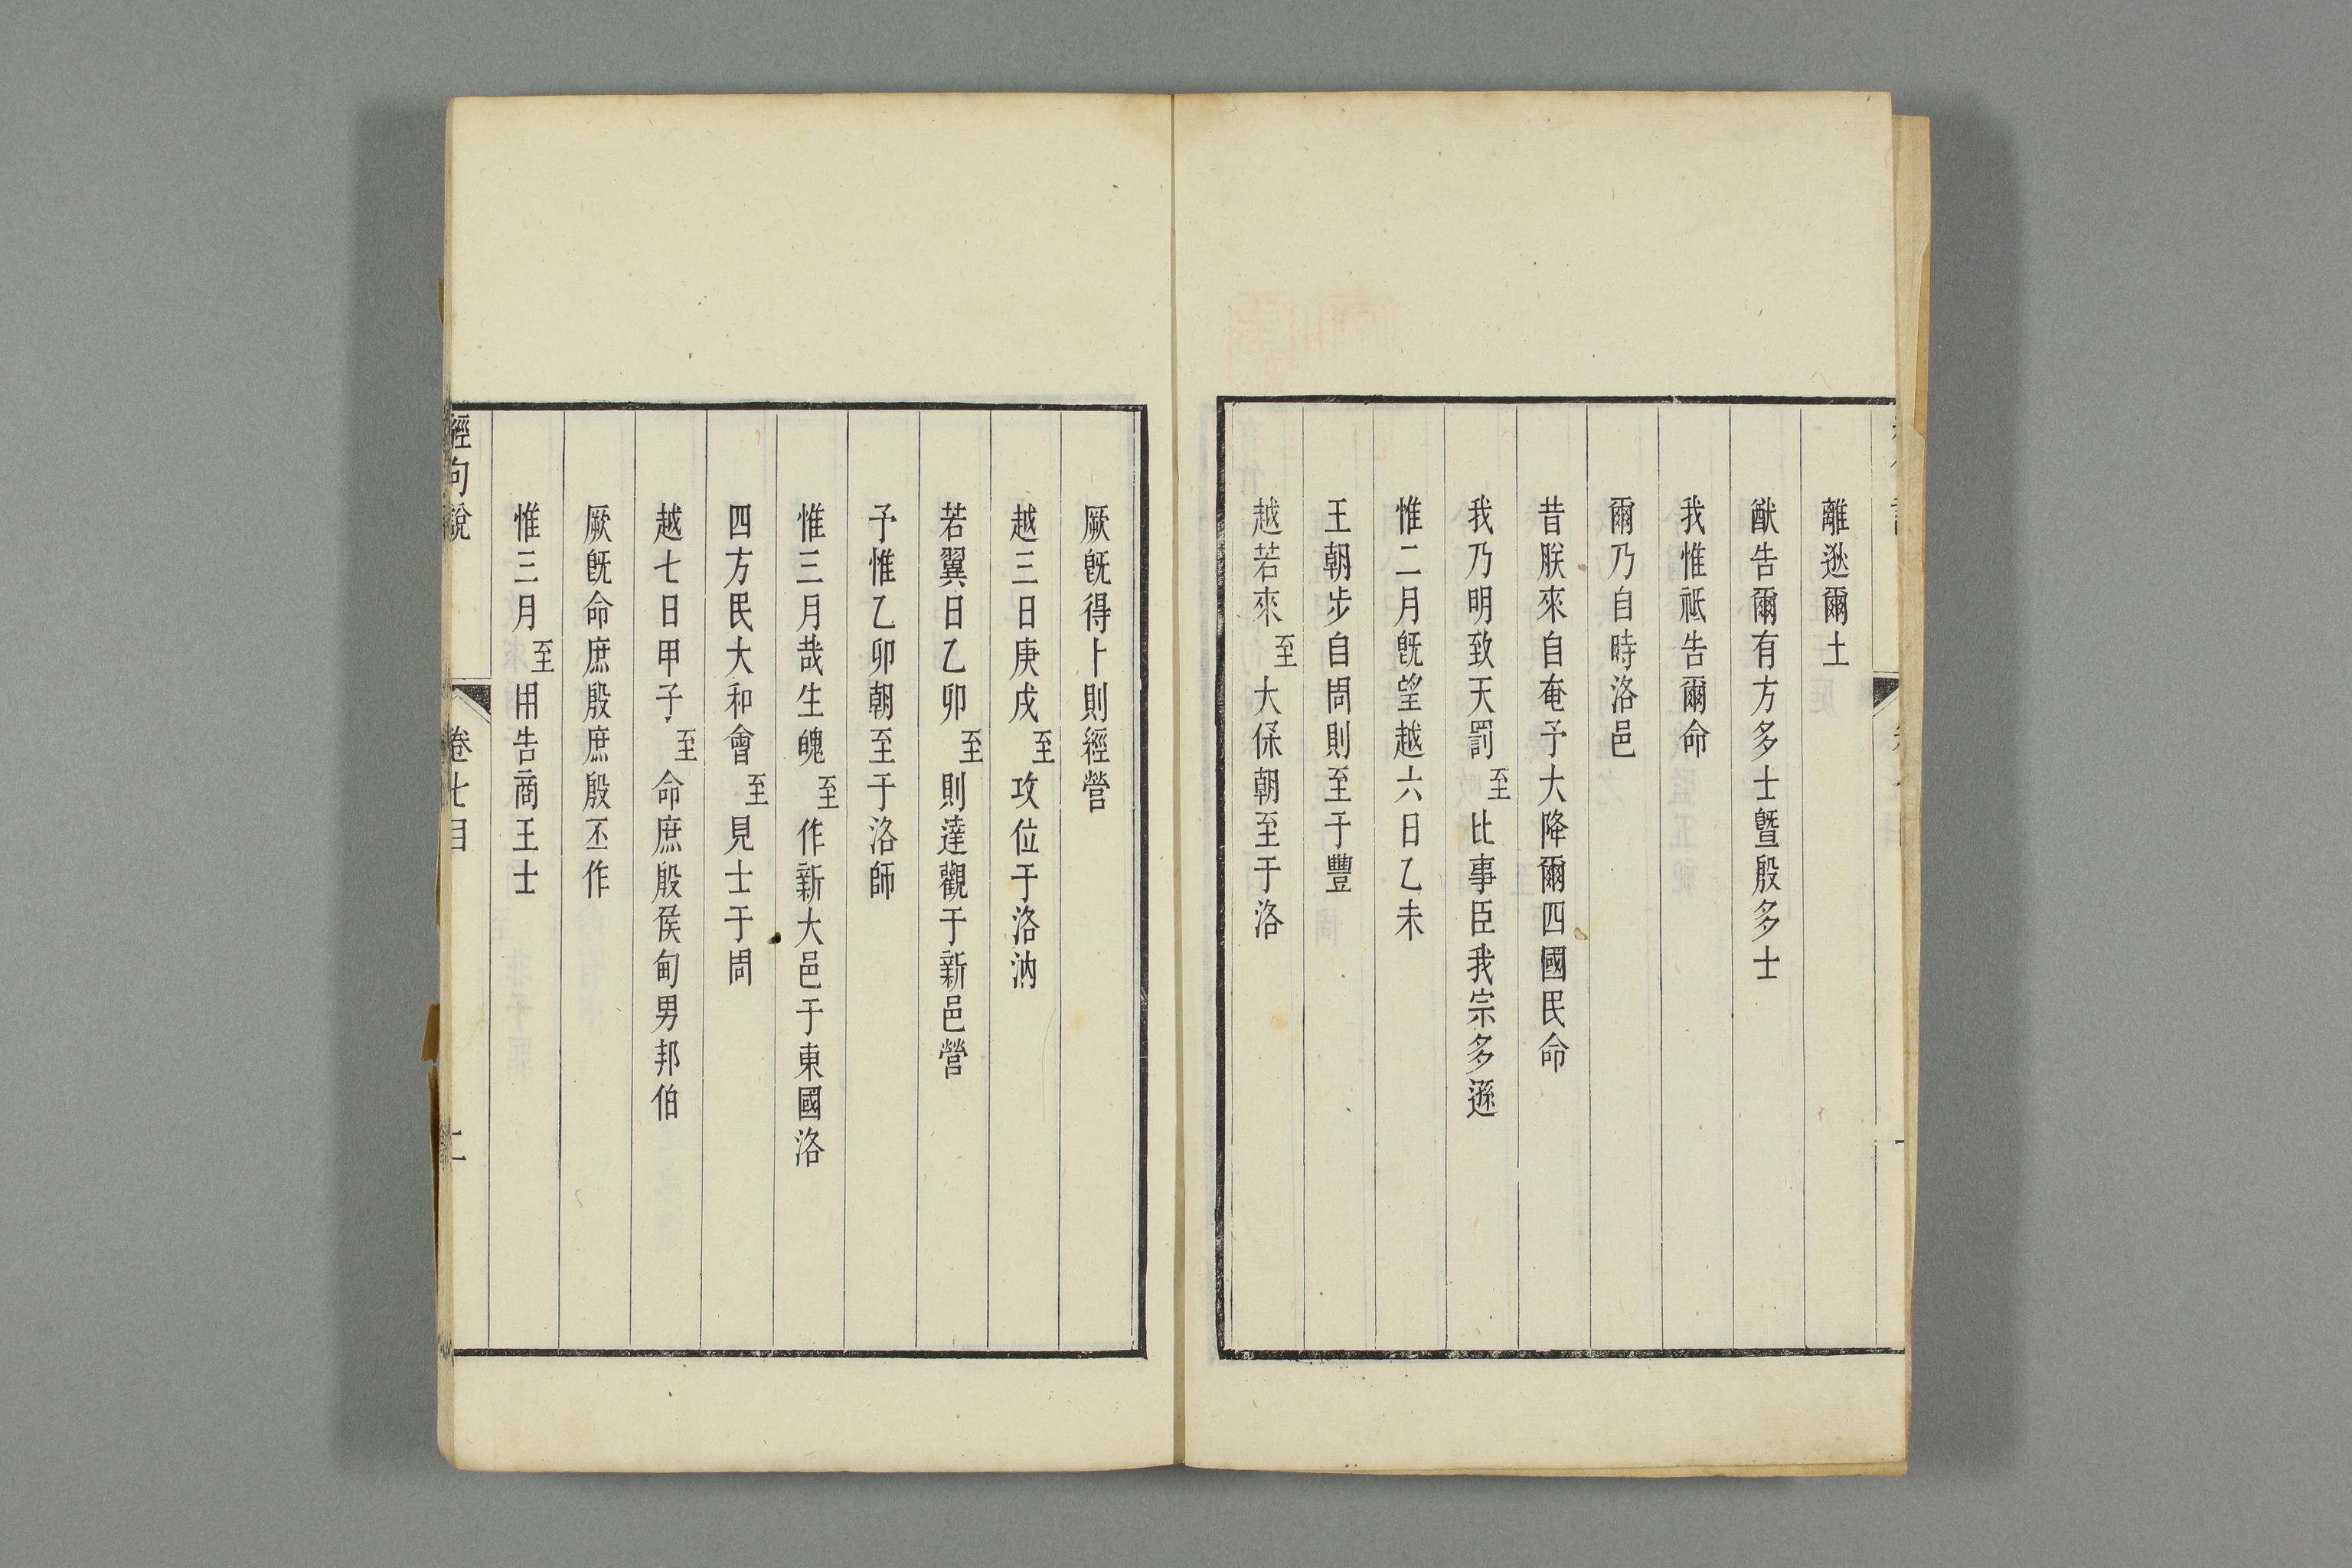 離逖爾土
猷告爾有方多士曁殷多士
我惟祗告爾命
爾乃自時洛邑
昔朕來自奄予大降爾四國民命
我乃明致天罰至比事臣我宗多遜
惟二月旣望越六日乙未
王朝步自周則至于豐
越若來至大保朝至于洛
厥旣得卜則經營
越三日庚戌至攻位于洛汭
若翼日乙卯至則達觀于新邑營
予惟乙卯朝至于洛師
惟三月哉生魄至作新大邑于東國洛
四方民大和會至見士于周
越七日甲子至命庶殷侯甸男邦伯
厥旣命庶殷庶殷丕作
惟三月至用告商王士
經句說 卷七目 二